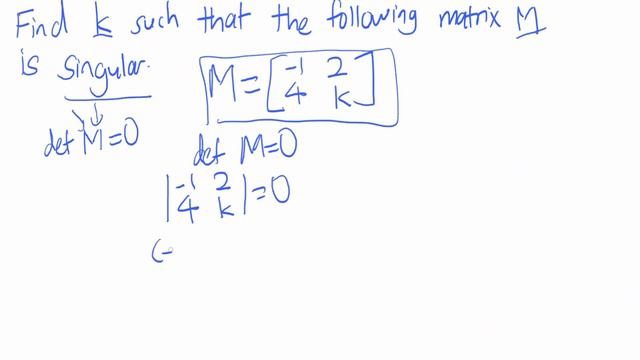 Find k such that the following matrix M
is singular.
M = [-1 2
4 k]
det M=0
det M=0
|-1 2
4 k| = 0
(-